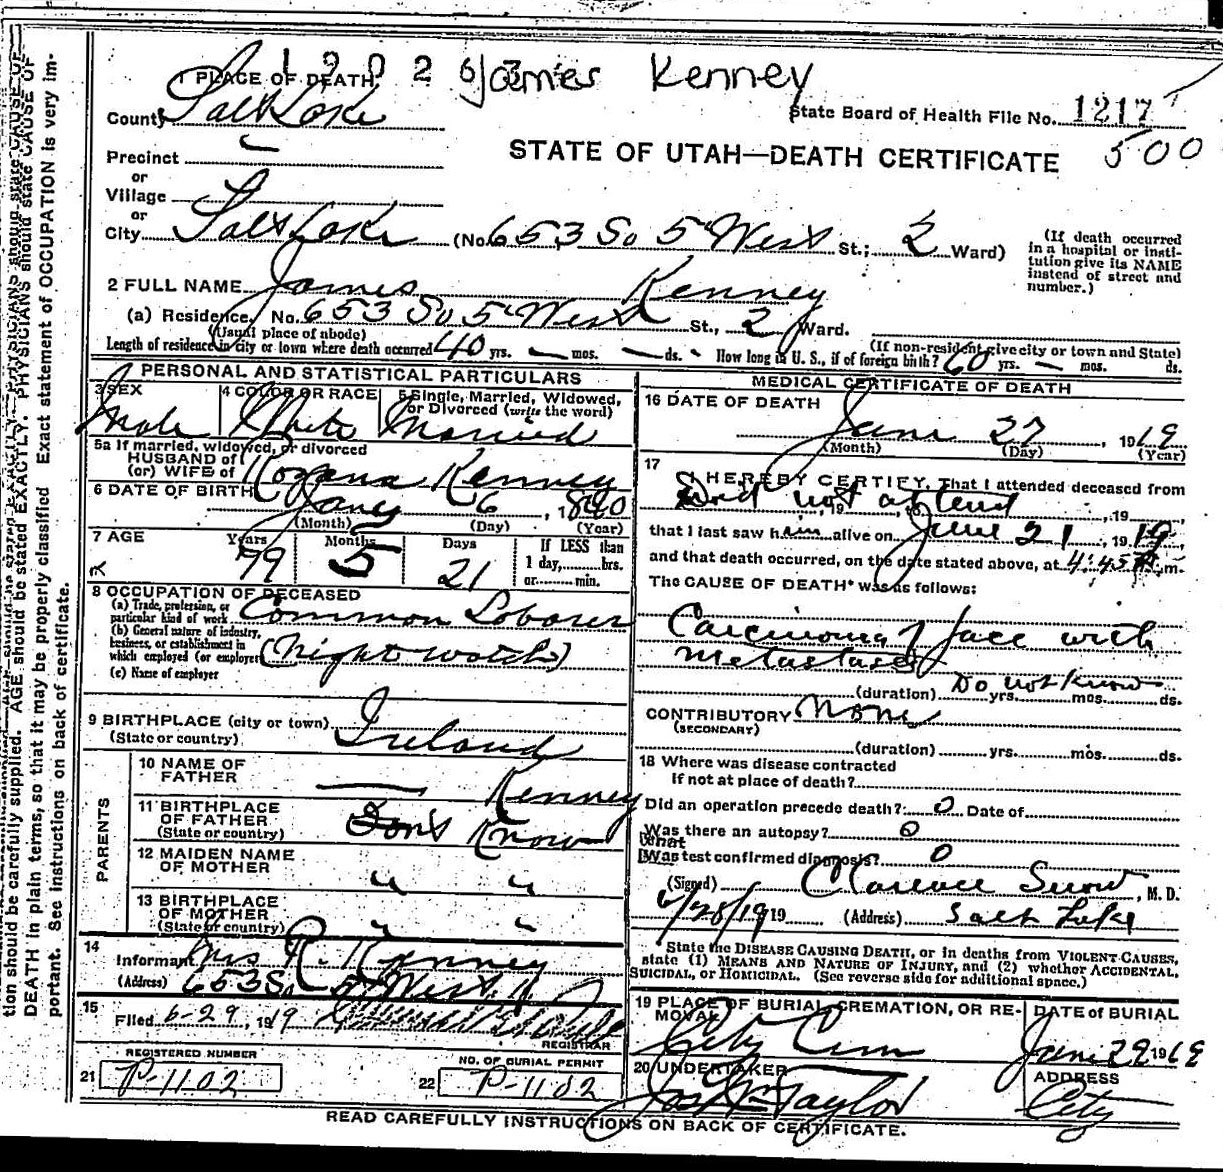 1 2 0 2 6 3 James Kenney
1 PLACE OF DEATH
County Salt Lake
State Board of Health File No. 1217
500
STATE OF UTAH—DEATH CERTIFICATE
Precinct
or
Village
or
City Salt Lake (No. 653 So 5" West St.; 2 Ward)
(If death occurred in a hospital or insti-
tution give its NAME
instead of street and
number.)
2 FULL NAME James Kenney
(a) Residence. No. 653 So 5" West St., 2 Ward.
(Usual place of abode)
(If non-resident give city or town and State)
Length of residence in city or town where death occurred 40 yrs. — mos. — ds. How long in U. S., if of foreign birth? 60 yrs. — mos. ds.
PERSONAL AND STATISTICAL PARTICULARS
3 SEX
Male
4 COLOR OR RACE
White
5 Single, Married, Widowed,
or Divorced (write the word)
Married
5a If married, widowed, or divorced
HUSBAND of
(or) WIFE of Kenney
6 DATE OF BIRTH Jany 6, 1840
(Month) (Day) (Year)
7 AGE Years Months Days If LESS than
79 5 21 1 day,........hrs.
or........min.
8 OCCUPATION OF DECEASED
(a) Trade, profession, or
particular kind of work Common Laborer
(b) General nature of industry,
business, or establishment in
which employed (or employer) (night watch)
(c) Name of employer
9 BIRTHPLACE (city or town)
(State or country) Ireland
PARENTS
10 NAME OF
FATHER — Kenney
11 BIRTHPLACE
OF FATHER
(State or country) Don't Know
12 MAIDEN NAME
OF MOTHER " "
13 BIRTHPLACE
OF MOTHER
(State or country) " "
14
Informant Mrs R. Kenney
(Address) 653 So 5" West
15 Filed 6-29, 1919
REGISTRAR
REGISTERED NUMBER
21 P-1102
NO. OF BURIAL PERMIT
22 P-1102
MEDICAL CERTIFICATE OF DEATH
16 DATE OF DEATH
June 27, 1919
(Month) (Day) (Year)
17
I HEREBY CERTIFY, That I attended deceased from
Did not attend, 19
that I last saw him alive on June 21, 1919,
and that death occurred, on the date stated above, at 4:45 m.
The CAUSE OF DEATH* was as follows:
Carcinoma of face with
metastases
Do not know
(duration) yrs. mos. ds.
CONTRIBUTORY None
(SECONDARY)
(duration) yrs. mos. ds.
18 Where was disease contracted
If not at place of death?
Did an operation precede death? 0 Date of
Was there an autopsy? 0
What
Was test confirmed diagnosis? 0
(Signed) Clarence Snow, M. D.
6/28/1919 (Address) Salt Lake
State the DISEASE CAUSING DEATH, or in deaths from VIOLENT CAUSES,
state (1) MEANS AND NATURE OF INJURY, and (2) whether ACCIDENTAL,
SUICIDAL, or HOMICIDAL. (See reverse side for additional space.)
19 PLACE OF BURIAL, CREMATION, OR RE-
MOVAL
City Cem
DATE of BURIAL
June 29 1919
20 UNDERTAKER
Taylor
ADDRESS
City
READ CAREFULLY INSTRUCTIONS ON BACK OF CERTIFICATE.
tion should be carefully supplied. AGE should be stated EXACTLY. PHYSICIANS should state CAUSE OF
DEATH in plain terms, so that it may be properly classified. Exact statement of OCCUPATION is very im-
portant. See instructions on back of certificate.